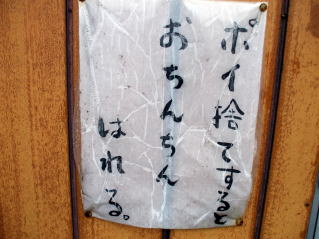 ポイ捨てすると
おちんちん
はれる。